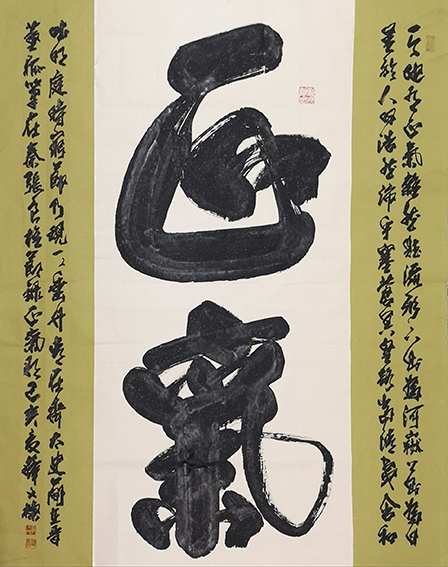 正氣
天地有正氣雜然賦流形下則為河嶽上則為日
星於人曰浩然沛乎塞蒼冥皇路當清夷含和
吐明庭時窮節乃現一一垂丹青在齊太史簡在晉
董狐筆在秦張良椎節錄正氣歌己亥